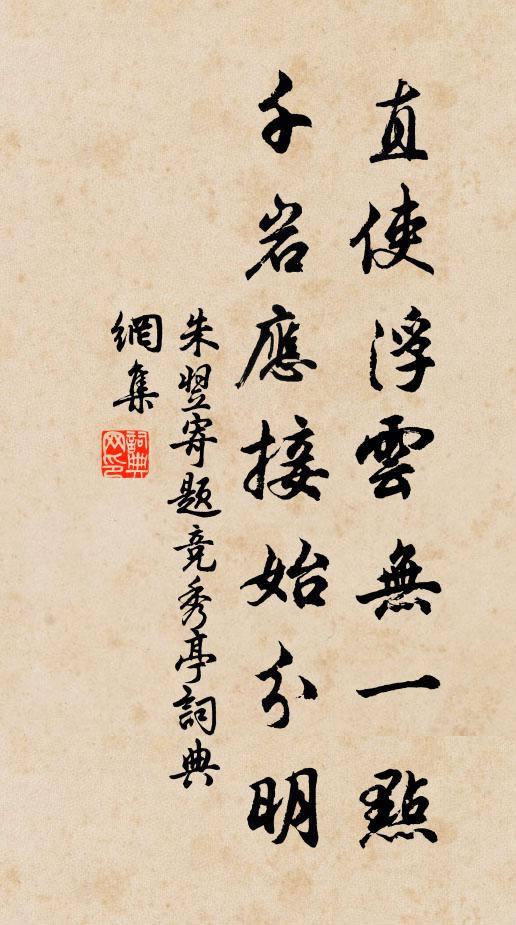 直使浮雲無一點
千岩應接始分明
朱翌寄題竞秀亭詞典
網集
詞典網印